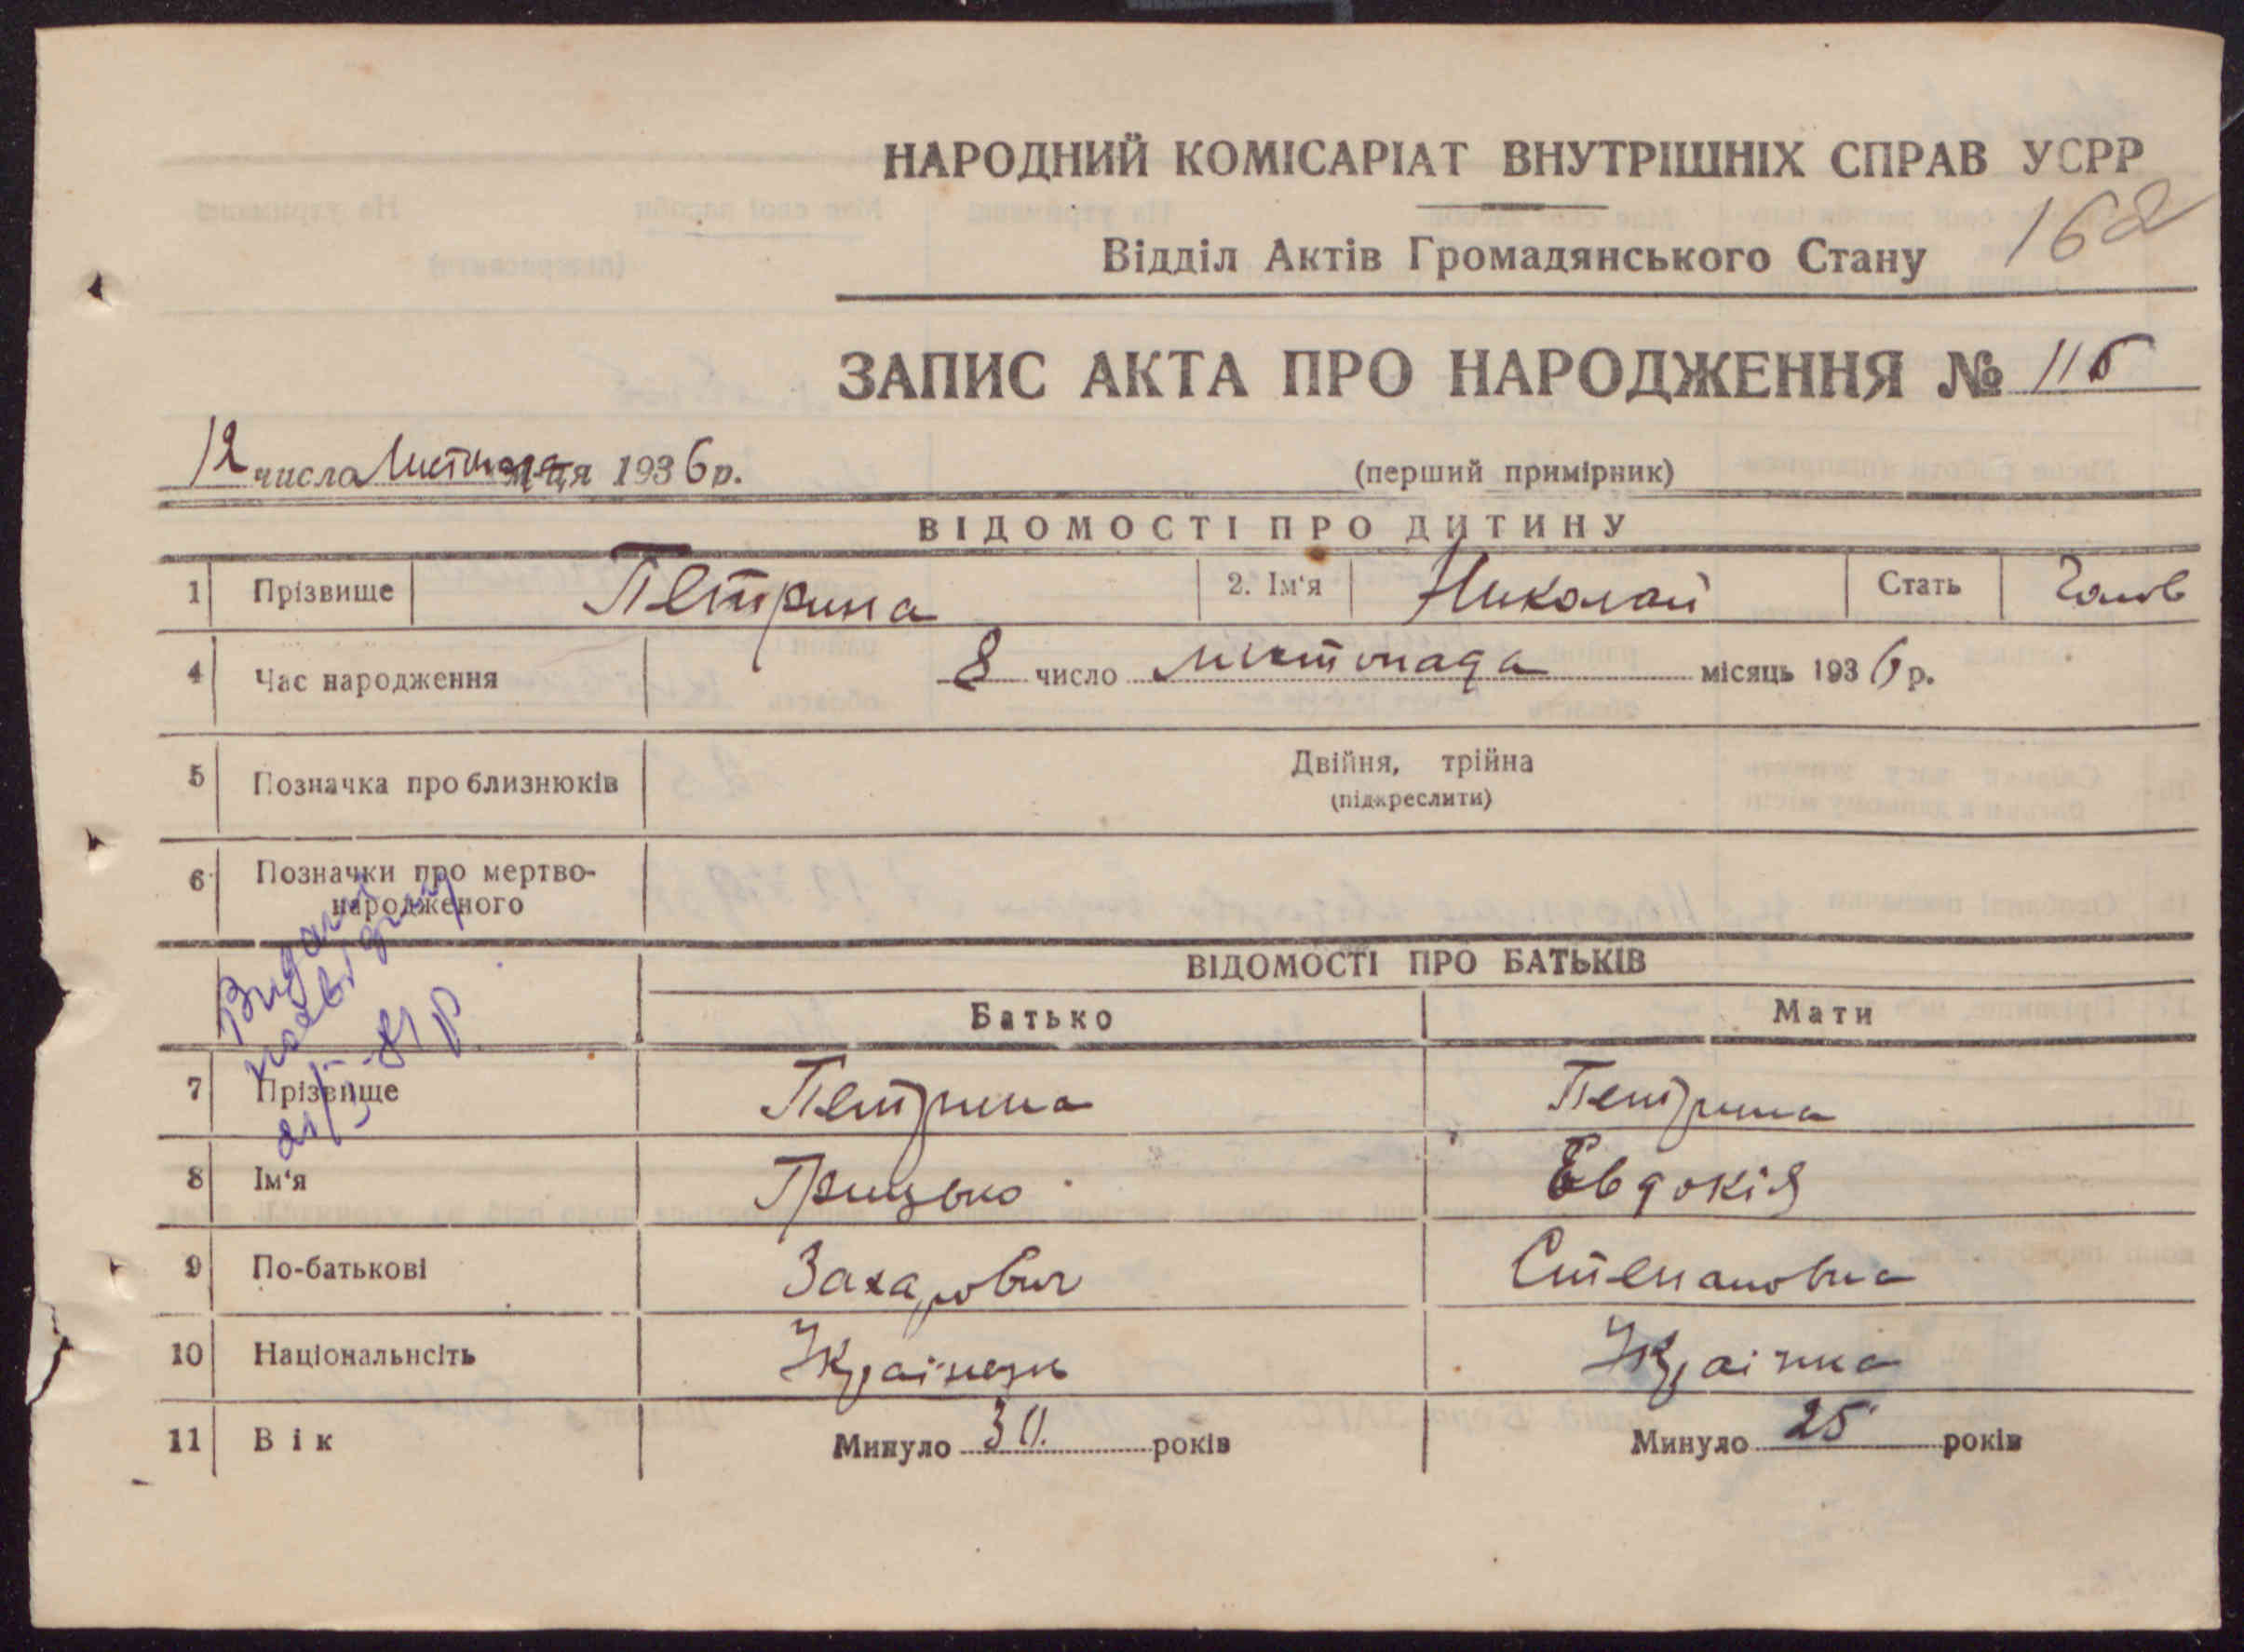 НАРОДНИЙ КОМІСАРІАТ ВНУТРІШНІХ СПРАВ УСРР
162
Відділ Актів Громадянського Стану
ЗАПИС АКТА ПРО НАРОДЖЕННЯ № 115
12 числа Листопада м-ця 1936 р.
(перший примірник)
ВІДОМОСТІ ПРО ДИТИНУ
1 Прізвище Петрина 2. Ім'я Николай Стать Чолов
4 Час народження 8 число листопада місяць 1936 р.
5 Позначка про близнюків Двійня, трійна
(підкреслити)
6 Позначки про мертво-
народженого
Видано
ВІДОМОСТІ ПРО БАТЬКІВ
Батько Мати
7 Прізвище Петрина Петрина
8 Ім'я Грицько Евдокія
9 По-батькові Захарович Степановна
10 Національнсіть Українець Українка
11 Вік Минуло 30. років Минуло 25 років